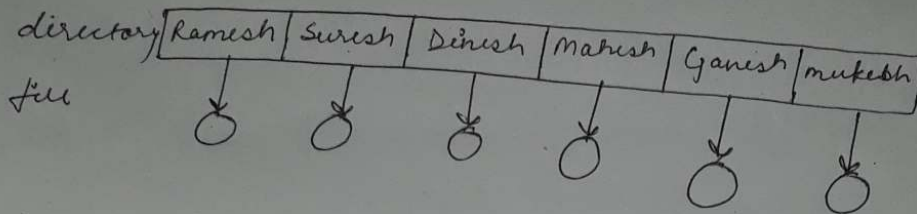 directory Ramesh Suresh Dinesh Mahesh Ganesh mukesh
file